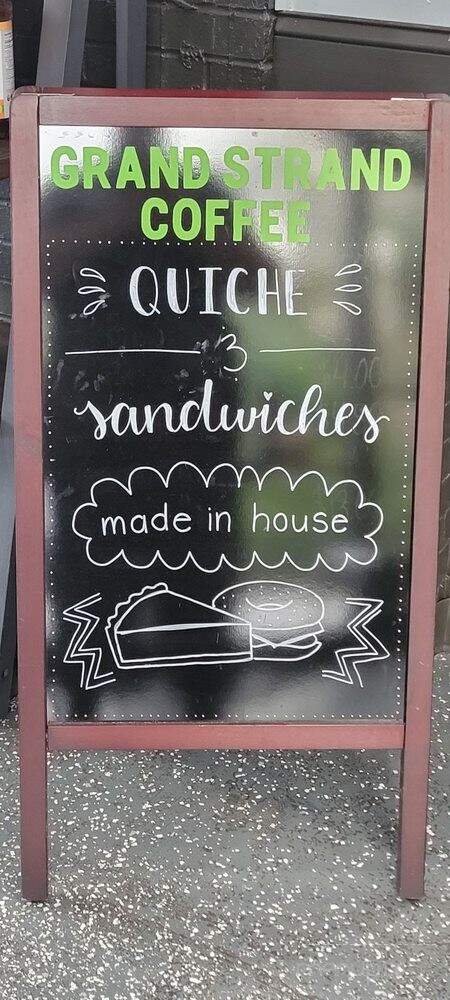 GRAND STRAND
COFFEE
QUICHE
3
sandwiches
made in house